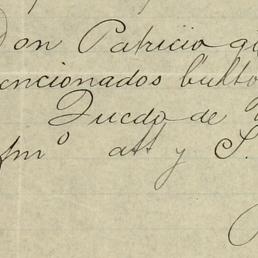 Don Patricio qu
encionados bulto
Quedo de
fmo att y S.